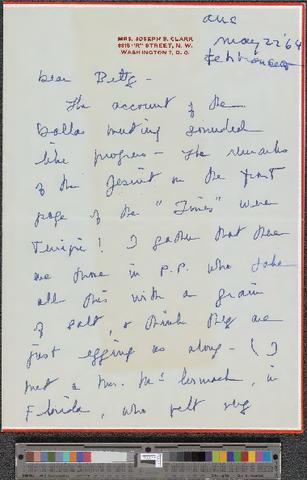 ans
May 22 '64
MRS. JOSEPH S. CLARK
"R" STREET, N. W.
WASHINGTON 7, D. C.
Dear Betty -
The account of the
Dallas meeting sounded
like progress - The remarks
of the Jesuit on the front
page of the "Times" were
Terrific! I gather that there
are those in P.P. who take
all this with a grain
of salt, & think they are
just egging us along - (I
met a Mrs. McCormack, in
Florida, who felt they